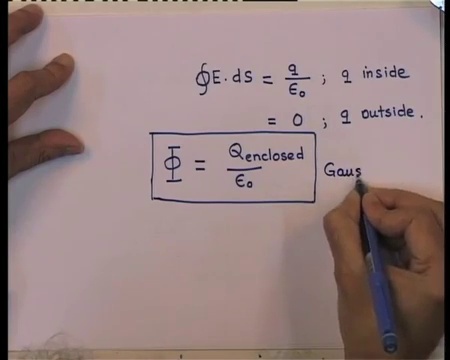 ∮E.ds = q/ε₀ ; q inside
= 0 ; q outside.
Φ = Qenclosed/ε₀ Gaus